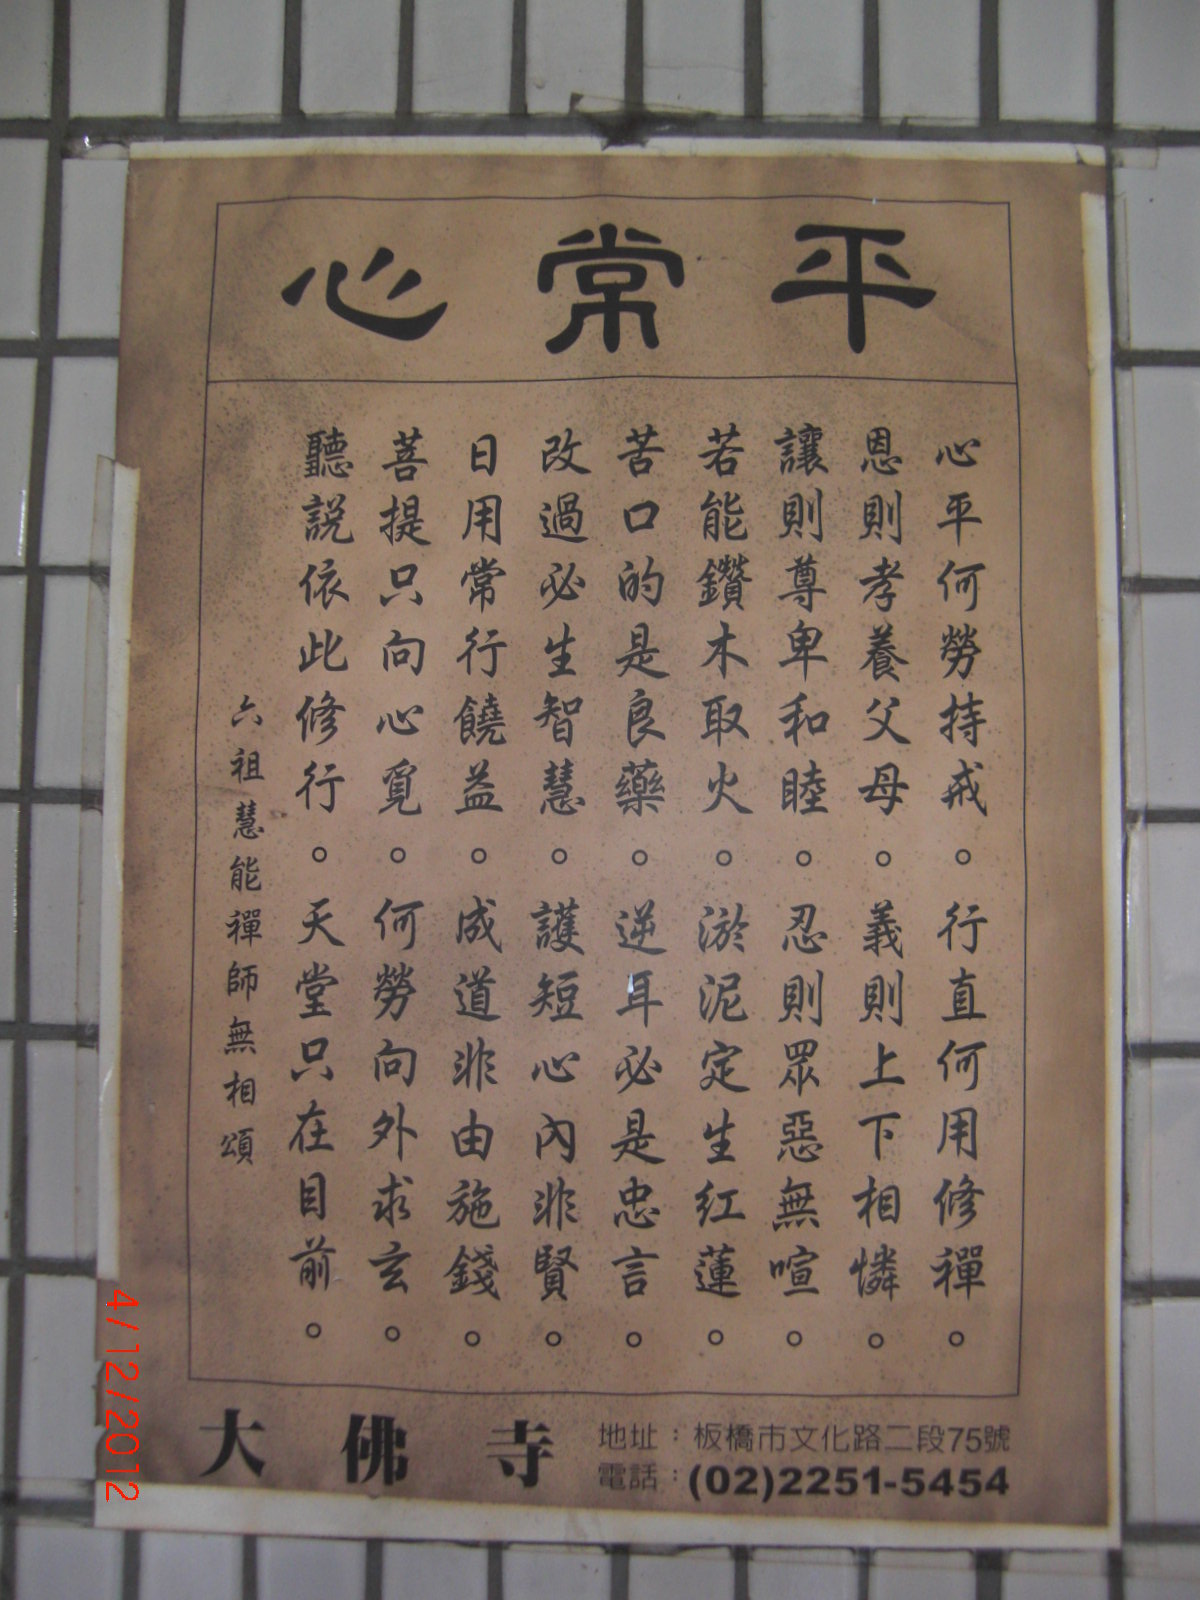 平常心
心平何勞持戒。行直何用修禪。
恩則孝養父母。義則上下相憐。
讓則尊卑和睦。忍則眾惡無喧。
若能鑽木取火。淤泥定生紅蓮。
苦口的是良藥。逆耳必是忠言。
改過必生智慧。護短心內非賢。
日用常行饒益。成道非由施錢。
菩提只向心覓。何勞向外求玄。
聽說依此修行。天堂只在目前。
六祖慧能禪師無相頌
大佛寺
地址：板橋市文化路二段75號
電話：(02)2251-5454
4/12/2012